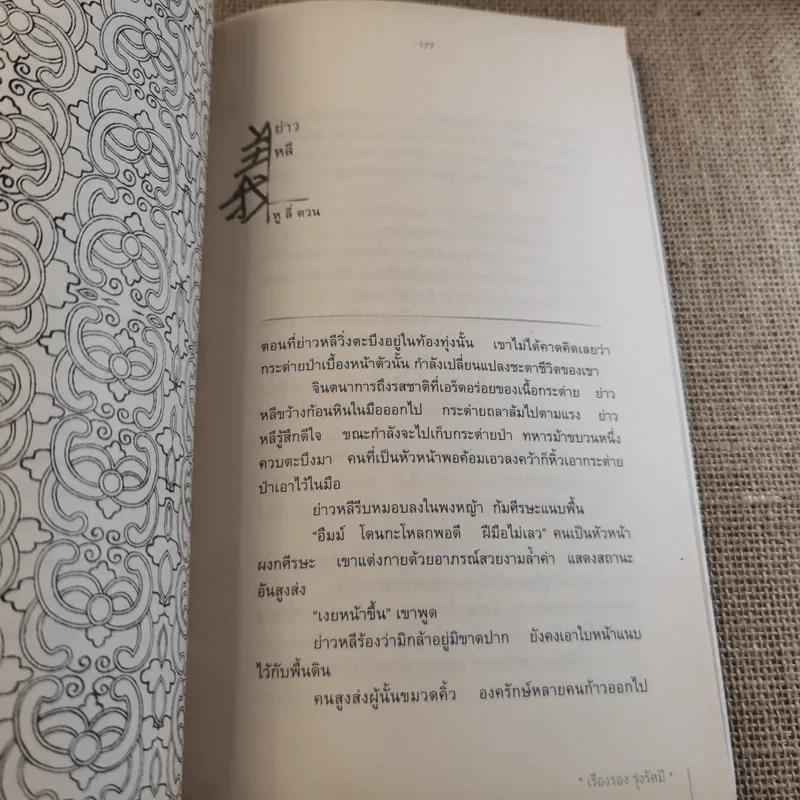 · ๖๖๖ ·
義
ย่าว
หลี
หู ลี่ ตวน
ตอนที่ย่าวหลีวิ่งตะบึงอยู่ในท้องทุ่งนั้น เขาไม่ได้คาดคิดเลยว่า
กระต่ายป่าเบื้องหน้าตัวนั้น กำลังเปลี่ยนแปลงชะตาชีวิตของเขา
จินตนาการถึงรสชาติที่เอร็ดอร่อยของเนื้อกระต่าย ย่าว
หลีขว้างก้อนหินในมือออกไป กระต่ายถลาล้มไปตามแรง ย่าว
หลีรู้สึกดีใจ ขณะกำลังจะไปเก็บกระต่ายป่า ทหารม้าขบวนหนึ่ง
ควบตะบึงมา คนที่เป็นหัวหน้าพอค้อมเอวลงคว้าก็หิ้วเอากระต่าย
ป่าเอาไว้ในมือ
ย่าวหลีรีบหมอบลงในพงหญ้า ก้มศีรษะแนบพื้น
“อืมม์ โดนกะโหลกพอดี ฝีมือไม่เลว” คนเป็นหัวหน้า
ผงกศีรษะ เขาแต่งกายด้วยอาภรณ์สวยงามล้ำค่า แสดงสถานะ
อันสูงส่ง
“เงยหน้าขึ้น” เขาพูด
ย่าวหลีร้องว่ามิกล้าอยู่มิขาดปาก ยังคงเอาใบหน้าแนบ
ไว้กับพื้นดิน
คนสูงส่งผู้นั้นขมวดคิ้ว องครักษ์หลายคนก้าวออกไป
* เรืองรอง รุ่งรัศมี *